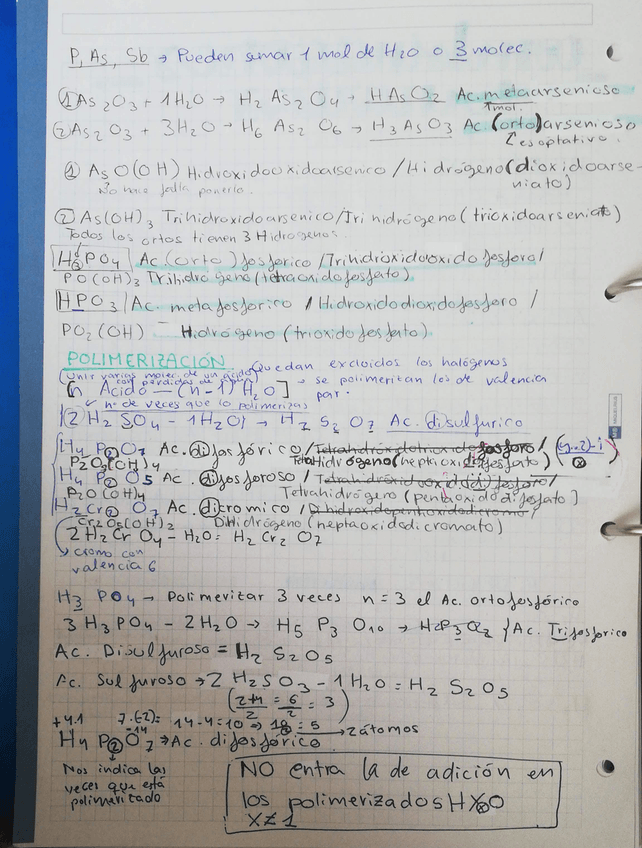 P, As, Sb → Pueden sumar 1 mol de H2O o 3 molec.
① As2O3 + 1H2O → H2 As2O4 → HAsO2 Ac. metaarsenioso
1mol.
② As2O3 + 3H2O → H6 As2 O6 → H3AsO3 Ac (orto)arsenioso
es optativo.
① AsO(OH) Hidroxidooxidoarsenico / Hidrógeno (dioxidoarse-
No hace falta ponerlo. niato)
② As(OH)3 Trihidroxidoarsenico/Trihidrógeno (trioxidoarseniato)
Todos los ortos tienen 3 Hidrogenos.
H3PO4 Ac (orto) fosforico /Trihidroxidooxidofosforo/
PO(OH)3 Trihidrogeno (tetraoxidofosfato).
HPO3 / Ac. metafosforico / Hidroxidodioxidofosforo /
PO2(OH) Hidrógeno (trioxidofosfato).
POLIMERIZACIÓN Quedan excluidos los halógenos
(Unir varias molec. de un ácido con pérdidas de
[n Acido - (n-1) H2O] → se polimerizan los de valencia
par.
n° de veces que lo polimerizas
2H2SO4 - 1H2O → H2 S2 O7 Ac. disulfurico
H4 P2O7 Ac. difosfórico/ fosforo/
P2O3(OH)4 TetraHidrógeno (heptaoxidodifosfato)
H4 P2 O5 Ac. difosforoso/
P2O(OH)4 Tetrahidrógeno (pentaoxidodifosfato)
H2Cr2 O7 Ac. dicromico /
Cr2O5(OH)2 DiHidrógeno (heptaoxidodicromato)
2H2CrO4 - H2O = H2Cr2O7
cromo con
valencia 6
H3 PO4 → Polimerizar 3 veces n=3 el Ac. ortofosfórico
3 H3PO4 - 2H2O → H5 P3 O10 → Ac. Trifosforico
Ac. Disulfuroso = H2 S2O5
Ac. Sulfuroso → 2 H2SO3 - 1H2O = H2 S2O5
(2+4/2 = 6/2 = 3)
+4.1 7·(-2) = 14-4=10 → 10/2 = 5
-14 → 2átomos
H4 P2O7 → Ac. difosfórico
Nos indica las
veces que está
polimerizado
NO entra la de adición en
los polimerizados HXO
X≠1